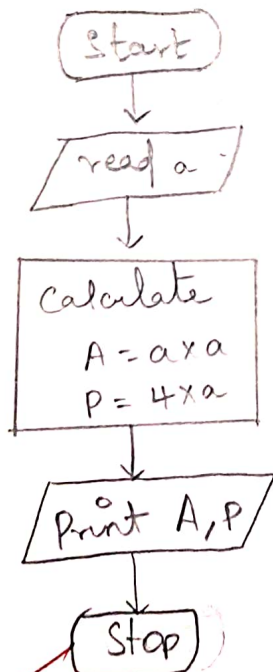 Start
read a
Calculate
A = a × a
P = 4 × a
Print A, P
Stop